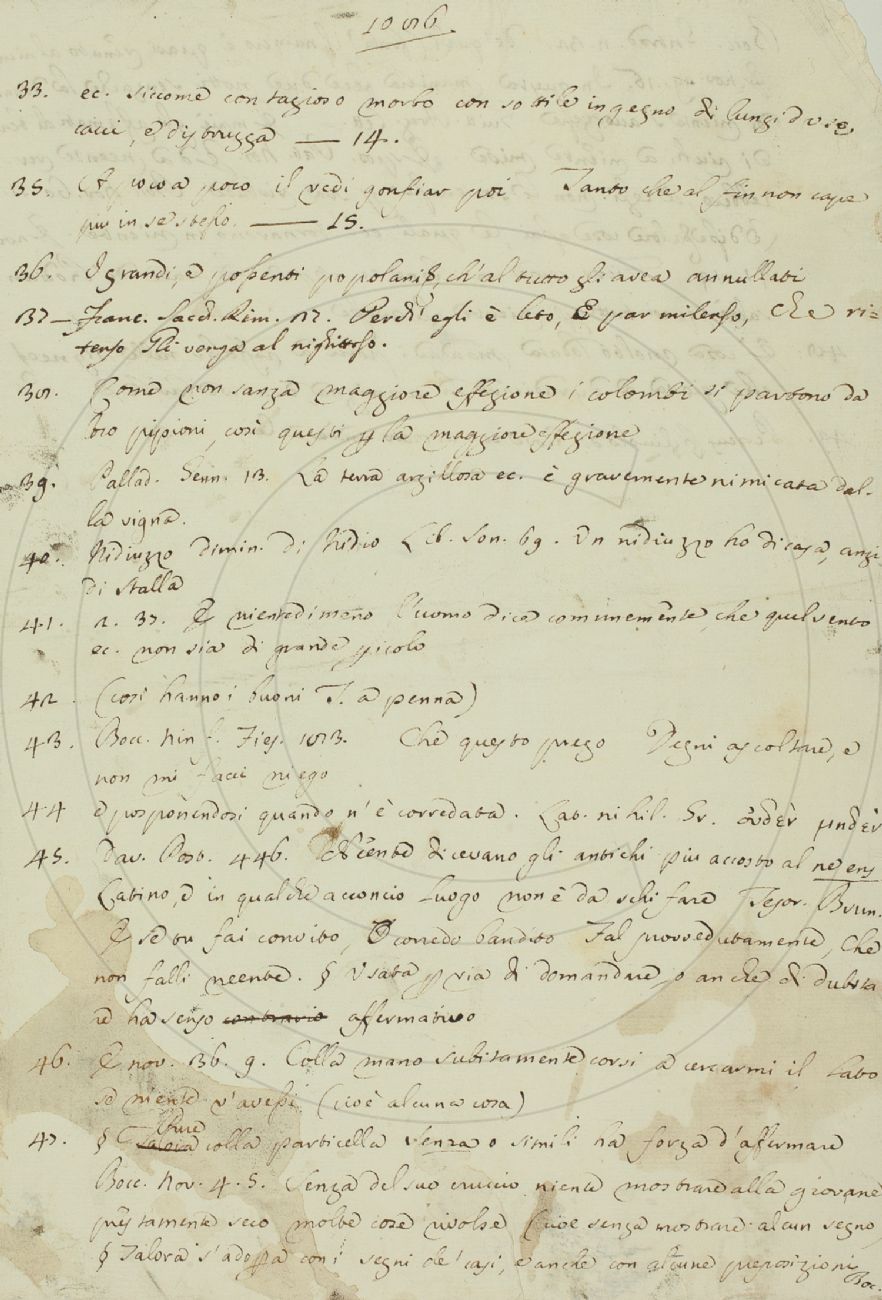 1056.
33. ec. siccome contagioso morbo con sottile ingegno di lungi
cacci, e distrugga — 14.
35. A poco a poco il vedi gonfiar poi Tanto che al fin non cape
più in se stesso. — 15.
36. I grandi, e possenti popolani, ch'al tutto gli avea annullati
37 — Franc. Sacch. Rim. 17. Perch' egli è leto, E par milenso, Che ri=
tenso Gli venga al nighittoso.
Come non sanza maggiore effezione i colombi si partono da
loro pippioni, così questi p la maggiore effezione
39. Pallad. Genn. 13. La terra argillosa ec. è gravemente nimicata dal-
la vigna.
40. Nidiuzzo dimin. di Nidio Lib. Son. 69. Un nidiuzzo ho di casa, anzi
di stalla
41. 2. 37. E nientedimeno l'uomo dice comunemente, che quel vento
ec. non sia di grande picolo
42. (così hanno i buoni T. a penna)
43. Bocc. Ninf. Fies. Che questo prego Degni ascoltare, e
non mi facci niego
44 e posponendosi quando n'è corredata. Lat. nihil. Gr. οὐδὲν μηδὲν
45. Dav. Post. 446. Neente dicevano gli antichi più accosto al ne ens
Latino, e in qualche acconcio luogo non è da schifare Tesor. Brun.
E se tu fai convito, O corredo bandito Fal provvedutamente, Che
non falli neente. § Usata p via di domandare, o anche di dubita
re ha senso contrario affermativo
46. E nov. 36. 9. Colla mano subitamente corsi a cercarmi il lato
se niente v'avessi (cioè alcuna cosa)
47. § Talora colla particella senza o simili ha forza d'affermare
Bocc. Nov. 4. 5. Senza del suo cruccio niente mostrare alla giovane
prestamente seco molte cose rivolse (cioè senza mostrare alcun segno
§ Talora s'adopra con i segni de' casi, e anche con alcune preposizioni
Boc.